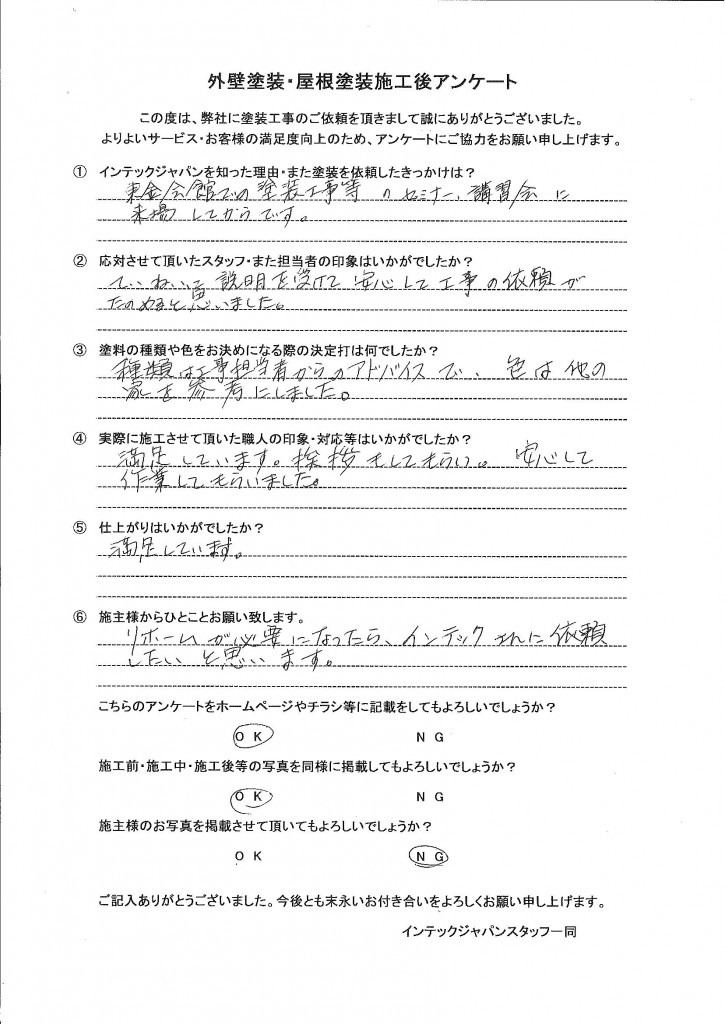 外壁塗装・屋根塗装施工後アンケート
この度は、弊社に塗装工事のご依頼を頂きまして誠にありがとうございました。
よりよいサービス・お客様の満足度向上のため、アンケートにご協力をお願い申し上げます。
① インテックジャパンを知った理由・また塗装を依頼したきっかけは？
東金会館での塗装工事等のセミナー、講習会に
来場してからです。
② 応対させて頂いたスタッフ・また担当者の印象はいかがでしたか？
ていねいに説明を受けて安心して工事の依頼が
たのめると思いました。
③ 塗料の種類や色をお決めになる際の決定打は何でしたか？
種類は工事担当者からのアドバイスで、色は他の
家を参考にしました。
④ 実際に施工させて頂いた職人の印象・対応等はいかがでしたか？
満足しています。挨拶もしてもらい。安心して
作業してもらいました。
⑤ 仕上がりはいかがでしたか？
満足しています。
⑥ 施主様からひとことお願い致します。
リホームが必要になったら、インテックさんに依頼
したいと思います。
こちらのアンケートをホームページやチラシ等に記載をしてもよろしいでしょうか？
ＯＫ ＮＧ
施工前・施工中・施工後等の写真を同様に掲載してもよろしいでしょうか？
ＯＫ ＮＧ
施主様のお写真を掲載させて頂いてもよろしいでしょうか？
ＯＫ ＮＧ
ご記入ありがとうございました。今後とも末永いお付き合いをよろしくお願い申し上げます。
インテックジャパンスタッフ一同